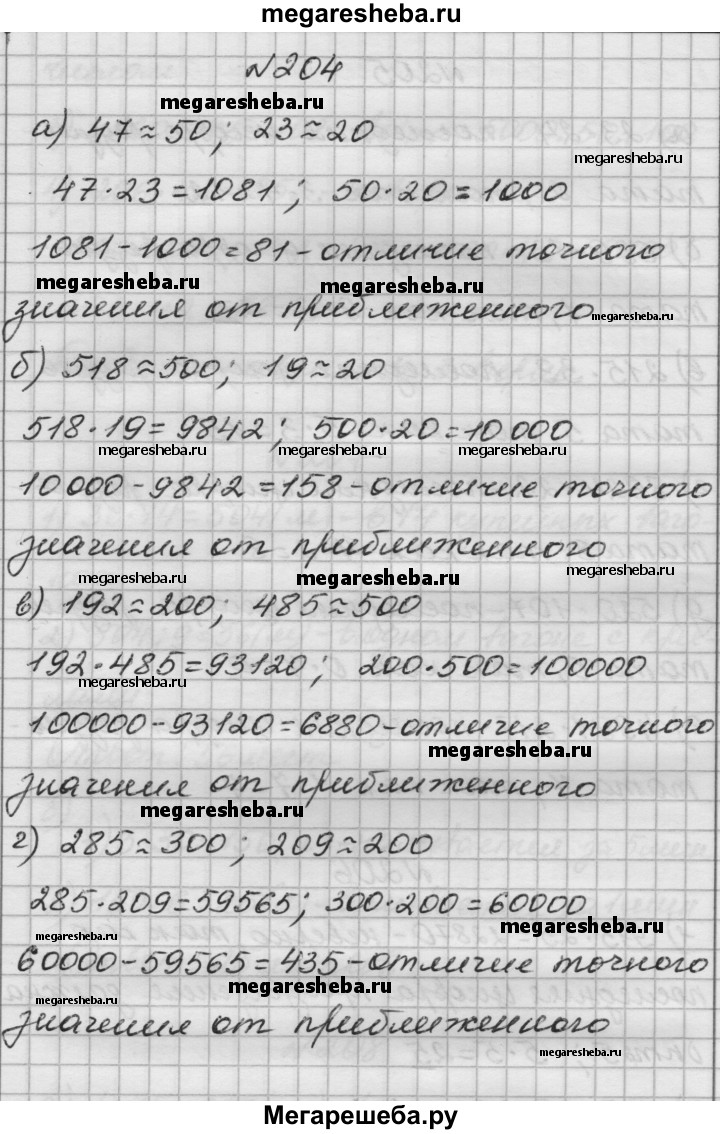 megaresheba.ru
№204
megaresheba.ru
а) 47≈50; 23≈20
megaresheba.ru
47·23=1081; 50·20=1000
1081-1000=81-отличие точного
megaresheba.ru megaresheba.ru
значения от приближенного megaresheba.ru
б) 518≈500; 19≈20
518·19=9842; 500·20=10000
megaresheba.ru megaresheba.ru megaresheba.ru
10000-9842=158-отличие точного
значения от приближенного
megaresheba.ru megaresheba.ru megaresheba.ru
в) 192≈200; 485≈500
192·485=93120; 200·500=100000
megaresheba.ru
100000-93120=6880-отличие точного
megaresheba.ru
значения от приближенного
megaresheba.ru
г) 285≈300; 209≈200
285·209=59565; 300·200=60000
megaresheba.ru megaresheba.ru
60000-59565=435-отличие точного
megaresheba.ru megaresheba.ru
значения от приближенного
megaresheba.ru
Мегарешеба.ру